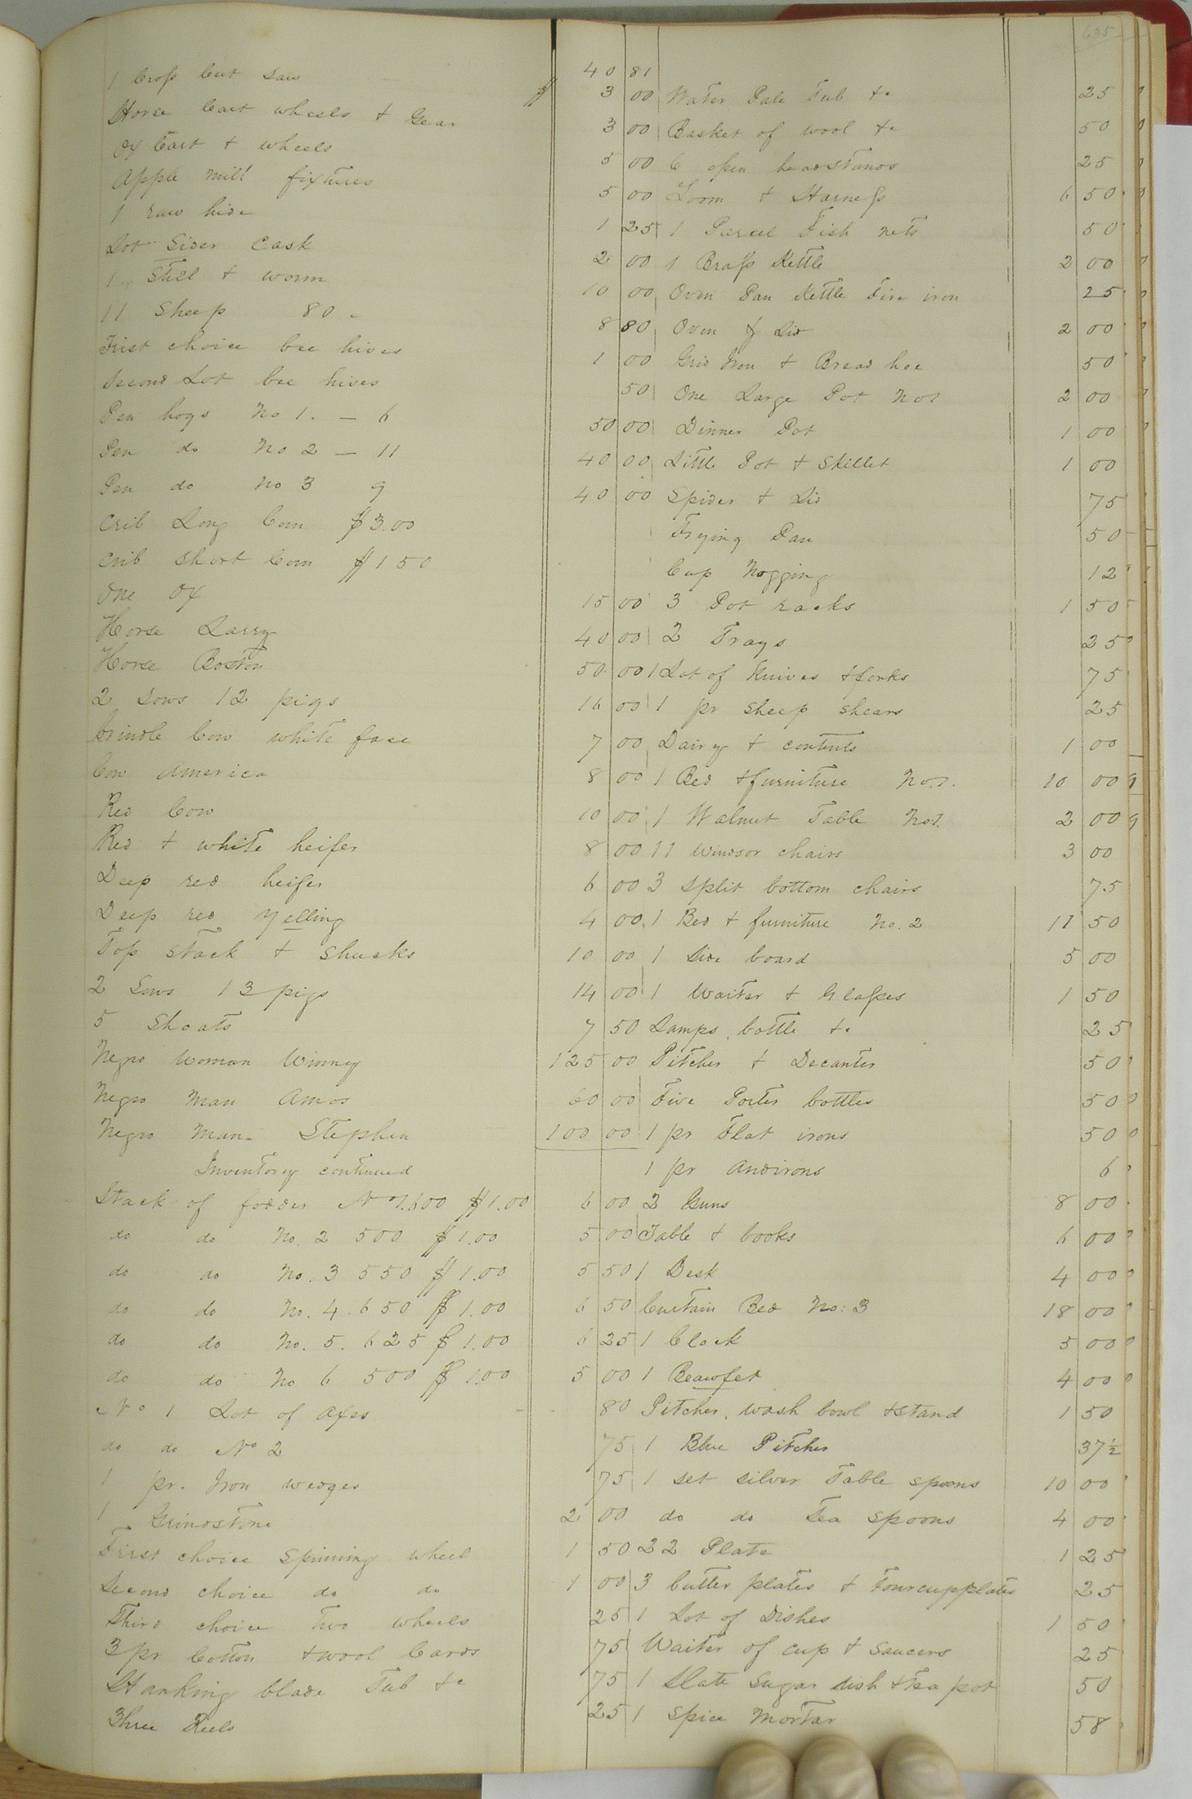 635
40 81
1 Cross Cut Saw $ 3 00
Horse Cart wheels & Gear 3 00
Ox Cart & wheels 5 00
Apple mill fixtures 5 00
1 raw hide 1 25
Lot Sider Cask 2 00
1 Still & worm 10 00
11 Sheep 80 8 80
First choice bee hives 1 00
Second Lot bee hives 50
Pen hogs No 1. — 6 50 00
Pen do No 2 — 11 40 00
Pen do No 3 9 40 00
Crib Long Corn $3.00
Crib Short Corn $1 50
One Ox 15 00
Horse Larry 40 00
Horse Boston 50 00
2 Sows 12 pigs 16 00
Brindle Cow white face 7 00
Cow America 8 00
Red Cow 10 00
Red & white heifer 8 00
Deep red heifer 6 00
Deep red Yelling 4 00
Top stack & Shucks 10 00
2 Sows 13 pigs 14 00
5 Shoats 7 50
Negro Woman Winney 125 00
Negro Man Amos 60 00
Negro Man Stephen 100 00
Inventory continued
Stack of fodder No 1. 600 $1.00 6 00
do do No. 2 500 $1.00 5 00
do do No. 3 550 $1.00 5 50
do do No. 4. 650 $1.00 6 50
do do No. 5. 625 $1.00 6 25
do do No 6 500 $1.00 5 00
No 1 Lot of Axes 80
do do No 2 75
1 pr. Iron wedges 75
1 Grindstone 2 00
First choice Spinning wheel 1 50
Second choice do do 1 00
Third choice Two wheels 25
3 pr Cotton & wool Cards 75
Hanking blade Tub &c 75
Three Reels 25
Water Pale Tub &c 25
Basket of wool &c 50
6 open headstands 25
Loom & Harness 6 50
1 Parcel Fish nets 50
1 Brass Kettle 2 00
Oven Pan Kettle Fire iron 25
Oven & Lid 2 00
Grid Iron & Bread hoe 50
One Large Pot No1 2 00
Dinner Pot 1 00
Little Pot & Skillet 1 00
Spider & Lid 75
Frying Pan 50
Cup Nogging 12
3 Pot racks 1 50
2 Trays 25
1 Lot of Knives & forks 75
1 pr Sheep Shears 25
Dairy & contents 1 00
1 Bed & furniture No1. 10 00
1 Walnut Table No1. 2 00
11 Windsor chairs 3 00
3 Split bottom chairs 75
1 Bed & furniture No. 2 11 50
1 Side board 5 00
1 Waiter & Glasses 1 50
Lamps, bottle &c 25
Pitcher & Decanter 50
Five Porter bottles 50
1 pr Flat irons 50
1 pr Andirons 6
2 Guns 8 00
Table & books 6 00
1 Desk 4 00
Curtain Bed No: 3 18 00
1 Clock 5 00
1 Beawfet 4 00
Pitcher, wash bowl & stand 1 50
1 Blue Pitcher 37½
1 Set Silver Table spoons 10 00
do do Tea spoons 4 00
22 Plate 1 25
3 butter plates & Four cup plates 25
1 Lot of Dishes 1 50
Waiter of cup & Saucers 25
1 Slate Sugar dish & tea pot 50
1 Spice Mortar 58